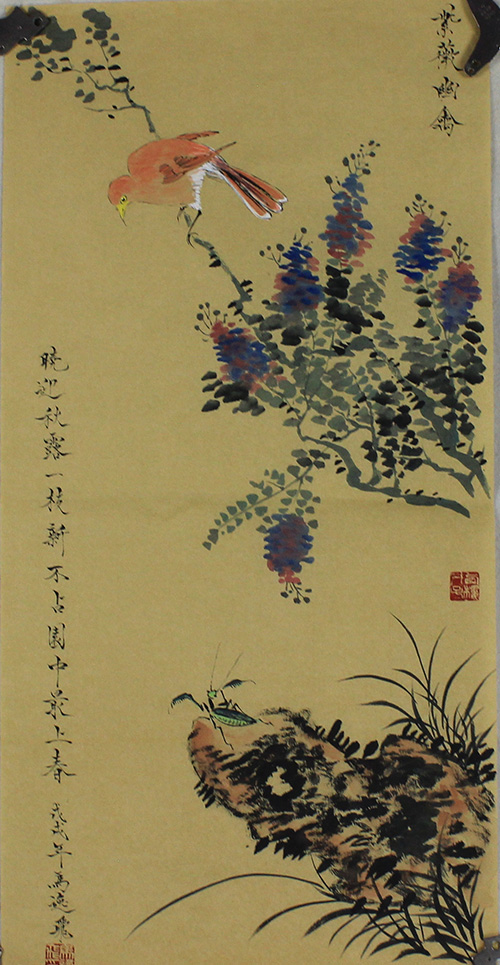 紫薇幽禽
晓迎秋露一枝新不占园中最上春
戊戌年高逸飞